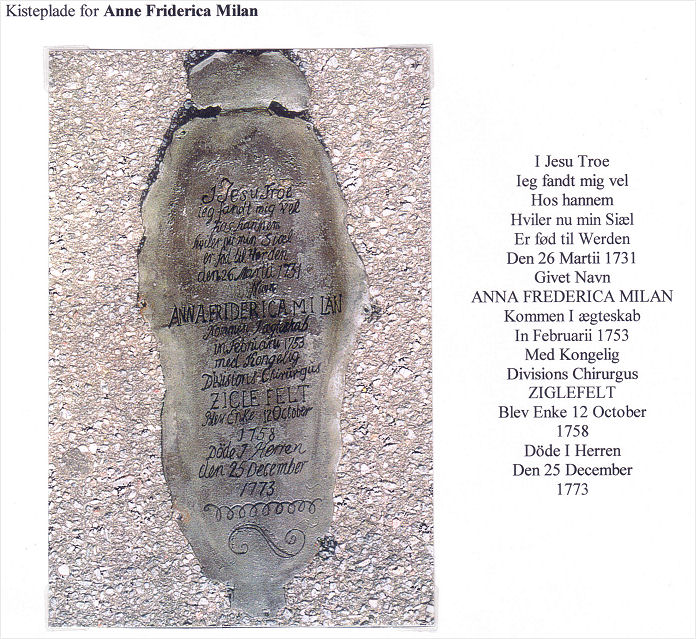 Kisteplade for Anne Friderica Milan
I Jesu Troe
ieg fandt mig vel
hos hannem
hviler nu min Siæl
er fød til Werden
den 26 Martii 1731
Navn
ANNA FRIDERICA MILAN
Kommen I ægteskab
in Februarii 1753
med Kongelig
Divisions Chirurgus
ZIGLEFELT
Blev Enke 12 October
1758
Döde I Herren
den 25 December
1773
I Jesu Troe
Ieg fandt mig vel
Hos hannem
Hviler nu min Siæl
Er fød til Werden
Den 26 Martii 1731
Givet Navn
ANNA FREDERICA MILAN
Kommen I ægteskab
In Februarii 1753
Med Kongelig
Divisions Chirurgus
ZIGLEFELT
Blev Enke 12 October
1758
Döde I Herren
Den 25 December
1773